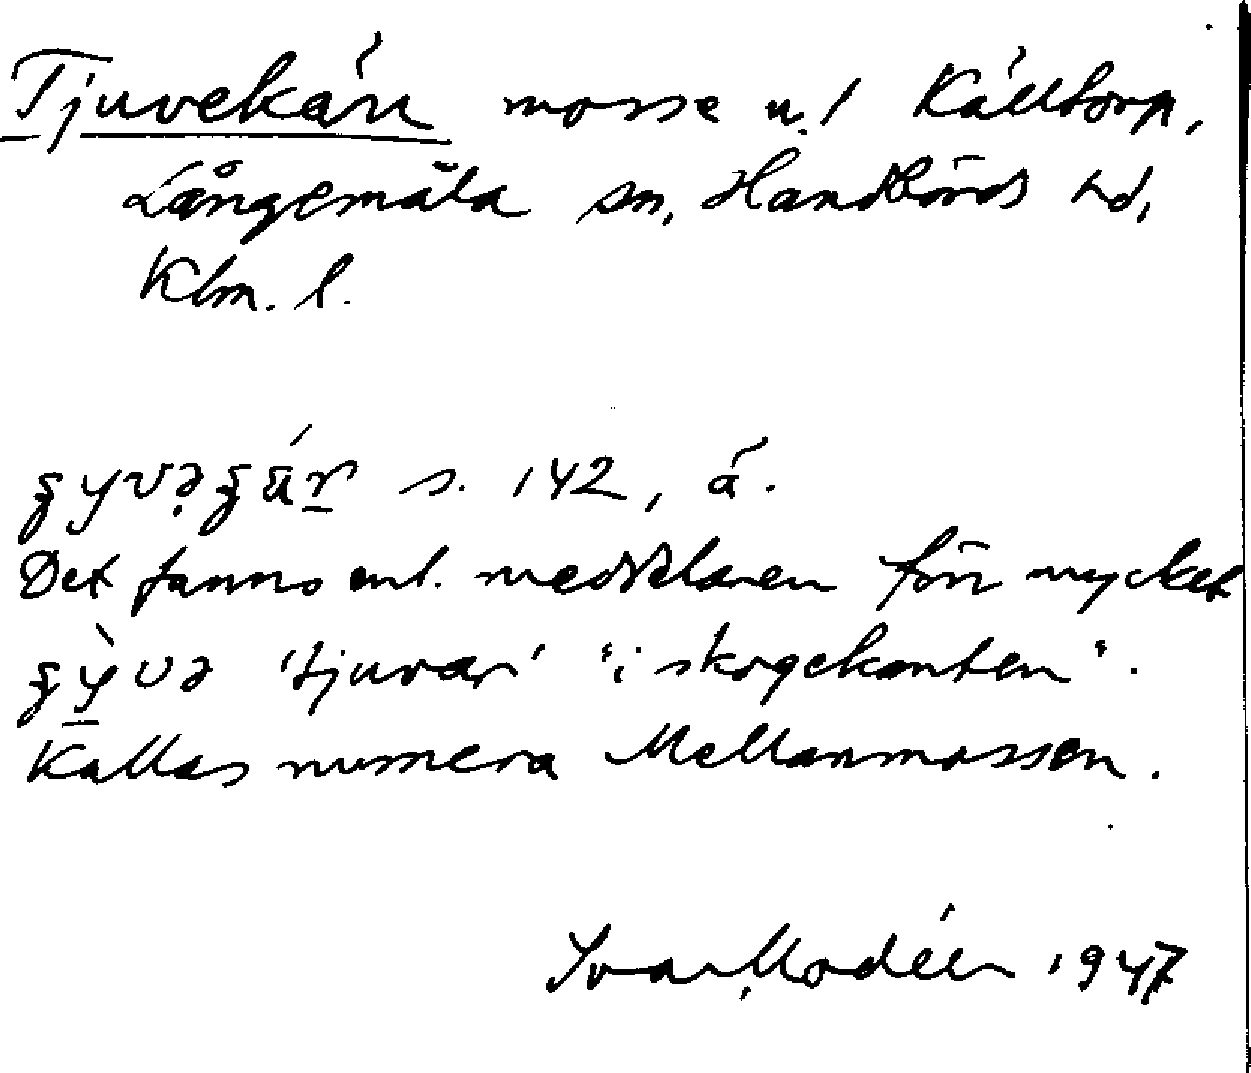 Tjuvekärr mosse u. / Källtorp,
Långemåla sn, Handbörds hd,
Klm. l.
s. 142, ä.
Det fanns enl. meddelaren förr mycket
'tjuvar' "i skogekanten".
Kallas numera Mellanmossen.
Ivar Modéer 1947